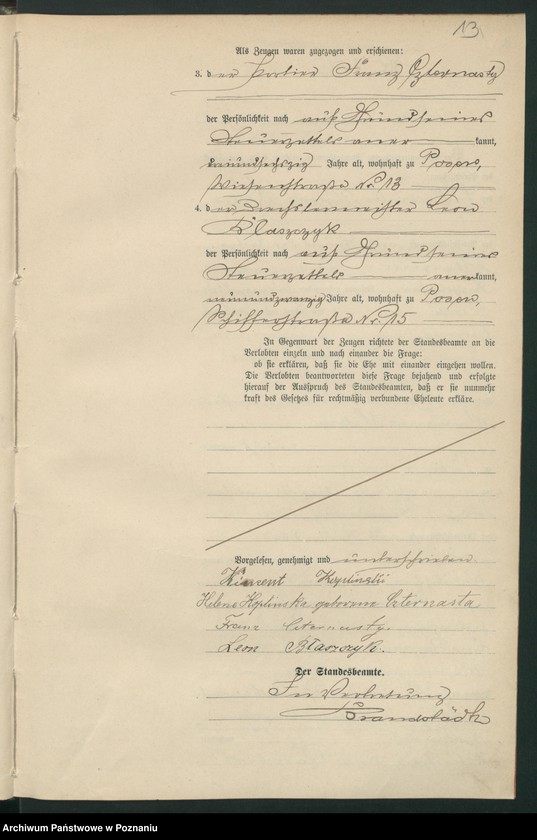 13
Als Zeugen waren zugezogen und erschienen:
3. der Portier Franz Czternasty
der Persönlichkeit nach auf Grund seines
Steuerzettels aner kannt,
dreiundsechszig Jahre alt, wohnhaft zu Posen,
Wiesenstraße Nr 13
4. der Drechslermeister Leon
Błaszczyk
der Persönlichkeit nach auf Grund seines
Steuerzettels anerkannt,
neunundzwanzig Jahre alt, wohnhaft zu Posen,
Schifferstraße Nr. 15
In Gegenwart der Zeugen richtete der Standesbeamte an die
Verlobten einzeln und nach einander die Frage:
ob sie erklären, daß sie die Ehe mit einander eingehen wollen.
Die Verlobten beantworteten diese Frage bejahend und erfolgte
hierauf der Ausspruch des Standesbeamten, daß er sie nunmehr
kraft des Gesetzes für rechtmäßig verbundene Eheleute erkläre.
Vorgelesen, genehmigt und unterschrieben
Klement Keplinski
Helena Keplinska geborene Czternasta
Franz Czternasty.
Leon Błaszczyk.
Der Standesbeamte.
In Vertretung
Brandstädt
Archiwum Państwowe w Poznaniu